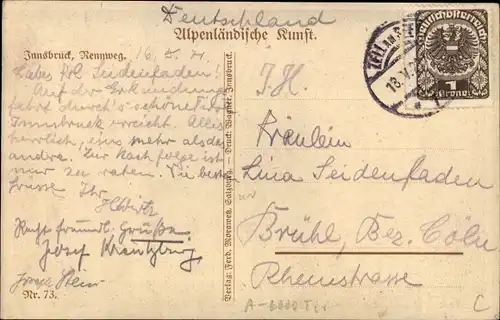 Deutschland
Alpenländische Kunst.
Innsbruck, Rennweg. 16. V. 21
Liebes Frl. Seidenfaden!
Auf der Erkundungs
fahrt durch's schöne Tirol
Innsbruck erreicht. Alles
herrlich, eins mehr als das
andre. Zur Nachfolge ist
nur zu raten. Die besten
Grüsse Ihr
Recht freundl. Grüße
Josef Kreutzburg
Nr. 73.
Verlag: Ferd. Morawetz, Salzburg. – Druck: Wagner, Innsbruck.
ZELL AM SEE
18. V. 21
Deutschösterreich
1 Krone 1
I. H.
Fräulein
Lina Seidenfaden
Brühl, Bez. Cöln
Rheinstrasse
C